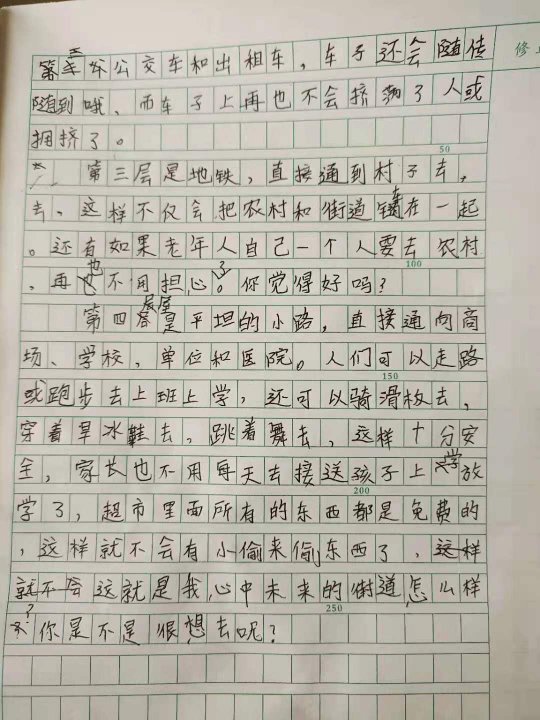 公交车和出租车，车子还会随传
随到哦、而车子上再也不会挤了人或
拥挤了。
50
第三层是地铁，直接通到村子去，
去，这样不仅会把农村和街道连在一起
。还有如果老年人自己一个人要去农村
100
，再也不用担心。你觉得好吗？
第四层是平坦的小路，直接通向商
场、学校，单位和医院。人们可以走路
150
或跑步去上班上学，还可以骑滑板去，
穿着旱冰鞋去，跳着舞去，这样十分安
全，家长也不用每天去接送孩子上学放
200
学了，超市里面所有的东西都是免费的
，这样就不会有小偷来偷东西了，这样
就不会这就是我心中未来的街道怎么样
250
？你是不是很想去呢？